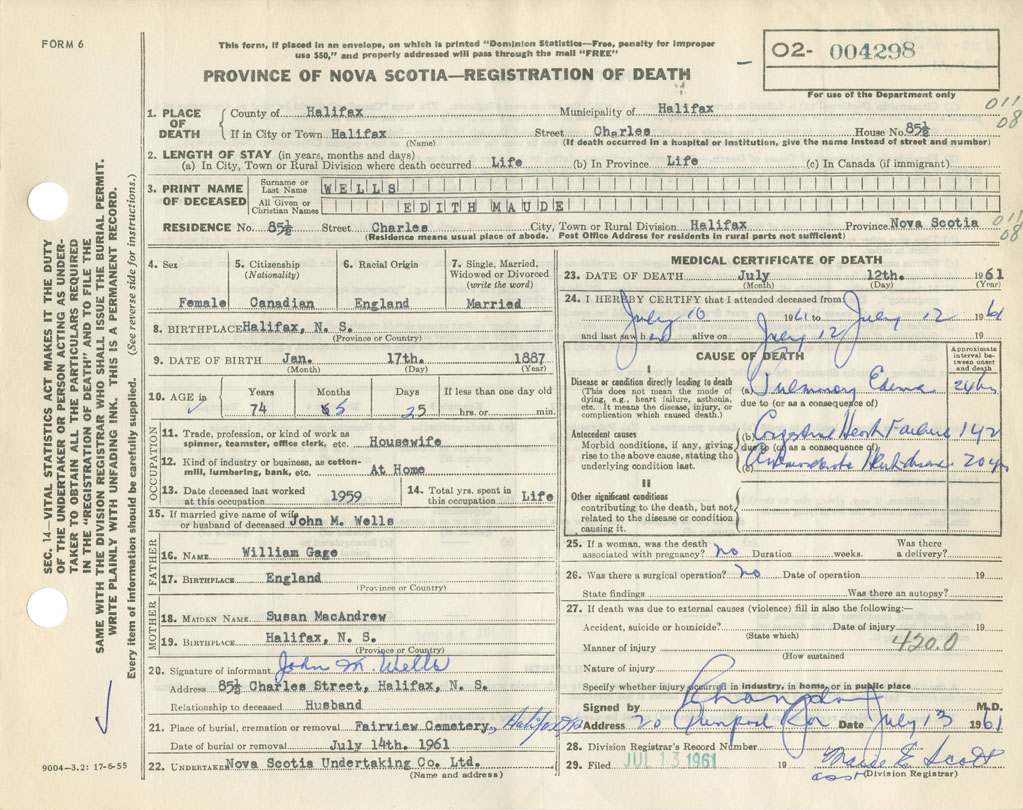 FORM 6
This form, if placed in an envelope, on which is printed "Dominion Statistics—Free, penalty for improper
use $50," and properly addressed will pass through the mail "FREE"
PROVINCE OF NOVA SCOTIA—REGISTRATION OF DEATH
02- 004298
For use of the Department only
011
08
1. PLACE OF DEATH
County of Halifax Municipality of Halifax
If in City or Town Halifax Street Charles House No. 85½
(Name) (If death occurred in a hospital or institution, give the name instead of street and number)
2. LENGTH OF STAY (in years, months and days)
(a) In City, Town or Rural Division where death occurred Life (b) In Province Life (c) In Canada (if immigrant)
3. PRINT NAME OF DECEASED
Surname or Last Name WELLS
All Given or Christian Names EDITH MAUDE
RESIDENCE No. 85½ Street Charles City, Town or Rural Division Halifax Province Nova Scotia
011
08
(Residence means usual place of abode. Post Office Address for residents in rural parts not sufficient)
4. Sex Female
5. Citizenship (Nationality) Canadian
6. Racial Origin England
7. Single, Married, Widowed or Divorced (write the word) Married
8. BIRTHPLACE Halifax, N. S.
(Province or Country)
9. DATE OF BIRTH Jan. 17th. 1887
(Month) (Day) (Year)
10. AGE in Years Months Days If less than one day old
74 5 25 hrs. or min.
OCCUPATION
11. Trade, profession, or kind of work as spinner, teamster, office clerk, etc. Housewife
12. Kind of industry or business, as cotton-mill, lumbering, bank, etc. At Home
13. Date deceased last worked at this occupation 1959
14. Total yrs. spent in this occupation Life
15. If married give name of wife or husband of deceased John M. Wells
FATHER
16. NAME William Gage
17. BIRTHPLACE England
(Province or Country)
MOTHER
18. MAIDEN NAME Susan MacAndrew
19. BIRTHPLACE Halifax, N. S.
(Province or Country)
20. Signature of informant John M. Wells
Address 85½ Charles Street, Halifax, N. S.
Relationship to deceased Husband
21. Place of burial, cremation or removal Fairview Cemetery, Halifax N.S.
Date of burial or removal July 14th. 1961
22. UNDERTAKER Nova Scotia Undertaking Co. Ltd.
(Name and address)
MEDICAL CERTIFICATE OF DEATH
23. DATE OF DEATH July 12th. 1961
(Month) (Day) (Year)
24. I HEREBY CERTIFY that I attended deceased from
July 10 1961 to July 12 1961
and last saw her alive on July 12 19
CAUSE OF DEATH
Approximate interval between onset and death
I
Disease or condition directly leading to death
(This does not mean the mode of dying, e.g., heart failure, asthenia, etc. It means the disease, injury, or complication which caused death.)
(a) Pulmonary Edema 24 hrs
due to (or as a consequence of)
Antecedent causes
Morbid conditions, if any, giving rise to the above cause, stating the underlying condition last.
(b) Congestive Heart Failure
due to (or as a consequence of)
(c) Heart disease 20 yrs
II
Other significant conditions
contributing to the death, but not related to the disease or condition causing it.
25. If a woman, was the death associated with pregnancy? no Duration weeks. Was there a delivery?
26. Was there a surgical operation? no Date of operation 19
State findings Was there an autopsy?
27. If death was due to external causes (violence) fill in also the following:—
Accident, suicide or homicide? Date of injury 19
(State which)
Manner of injury 420.0
(How sustained
Nature of injury
Specify whether injury occurred in industry, in home, or in public place
Signed by M.D.
Address 20 Date July 13 1961
28. Division Registrar's Record Number
29. Filed JUL 13 1961 19 E Scott
asst (Division Registrar)
SEC. 14—VITAL STATISTICS ACT MAKES IT THE DUTY
OF THE UNDERTAKER OR PERSON ACTING AS UNDER-
TAKER TO OBTAIN ALL THE PARTICULARS REQUIRED
IN THE "REGISTRATION OF DEATH" AND TO FILE THE
SAME WITH THE DIVISION REGISTRAR WHO SHALL ISSUE THE BURIAL PERMIT.
WRITE PLAINLY WITH UNFADING INK. THIS IS A PERMANENT RECORD.
Every item of information should be carefully supplied. (See reverse side for instructions.)
9004—3.2: 17-6-55